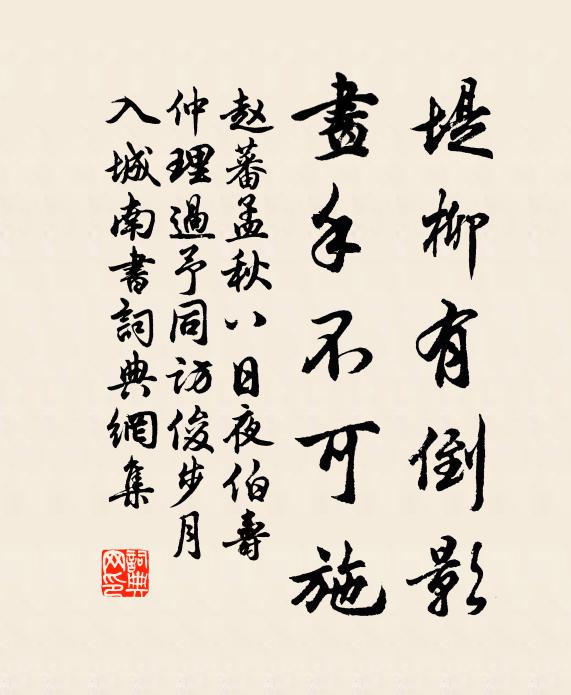 堤柳有倒影
畫手不可施
赵蕃孟秋八日夜伯壽
仲理過予同访俊步月
入城南書詞典網集
詞典网印